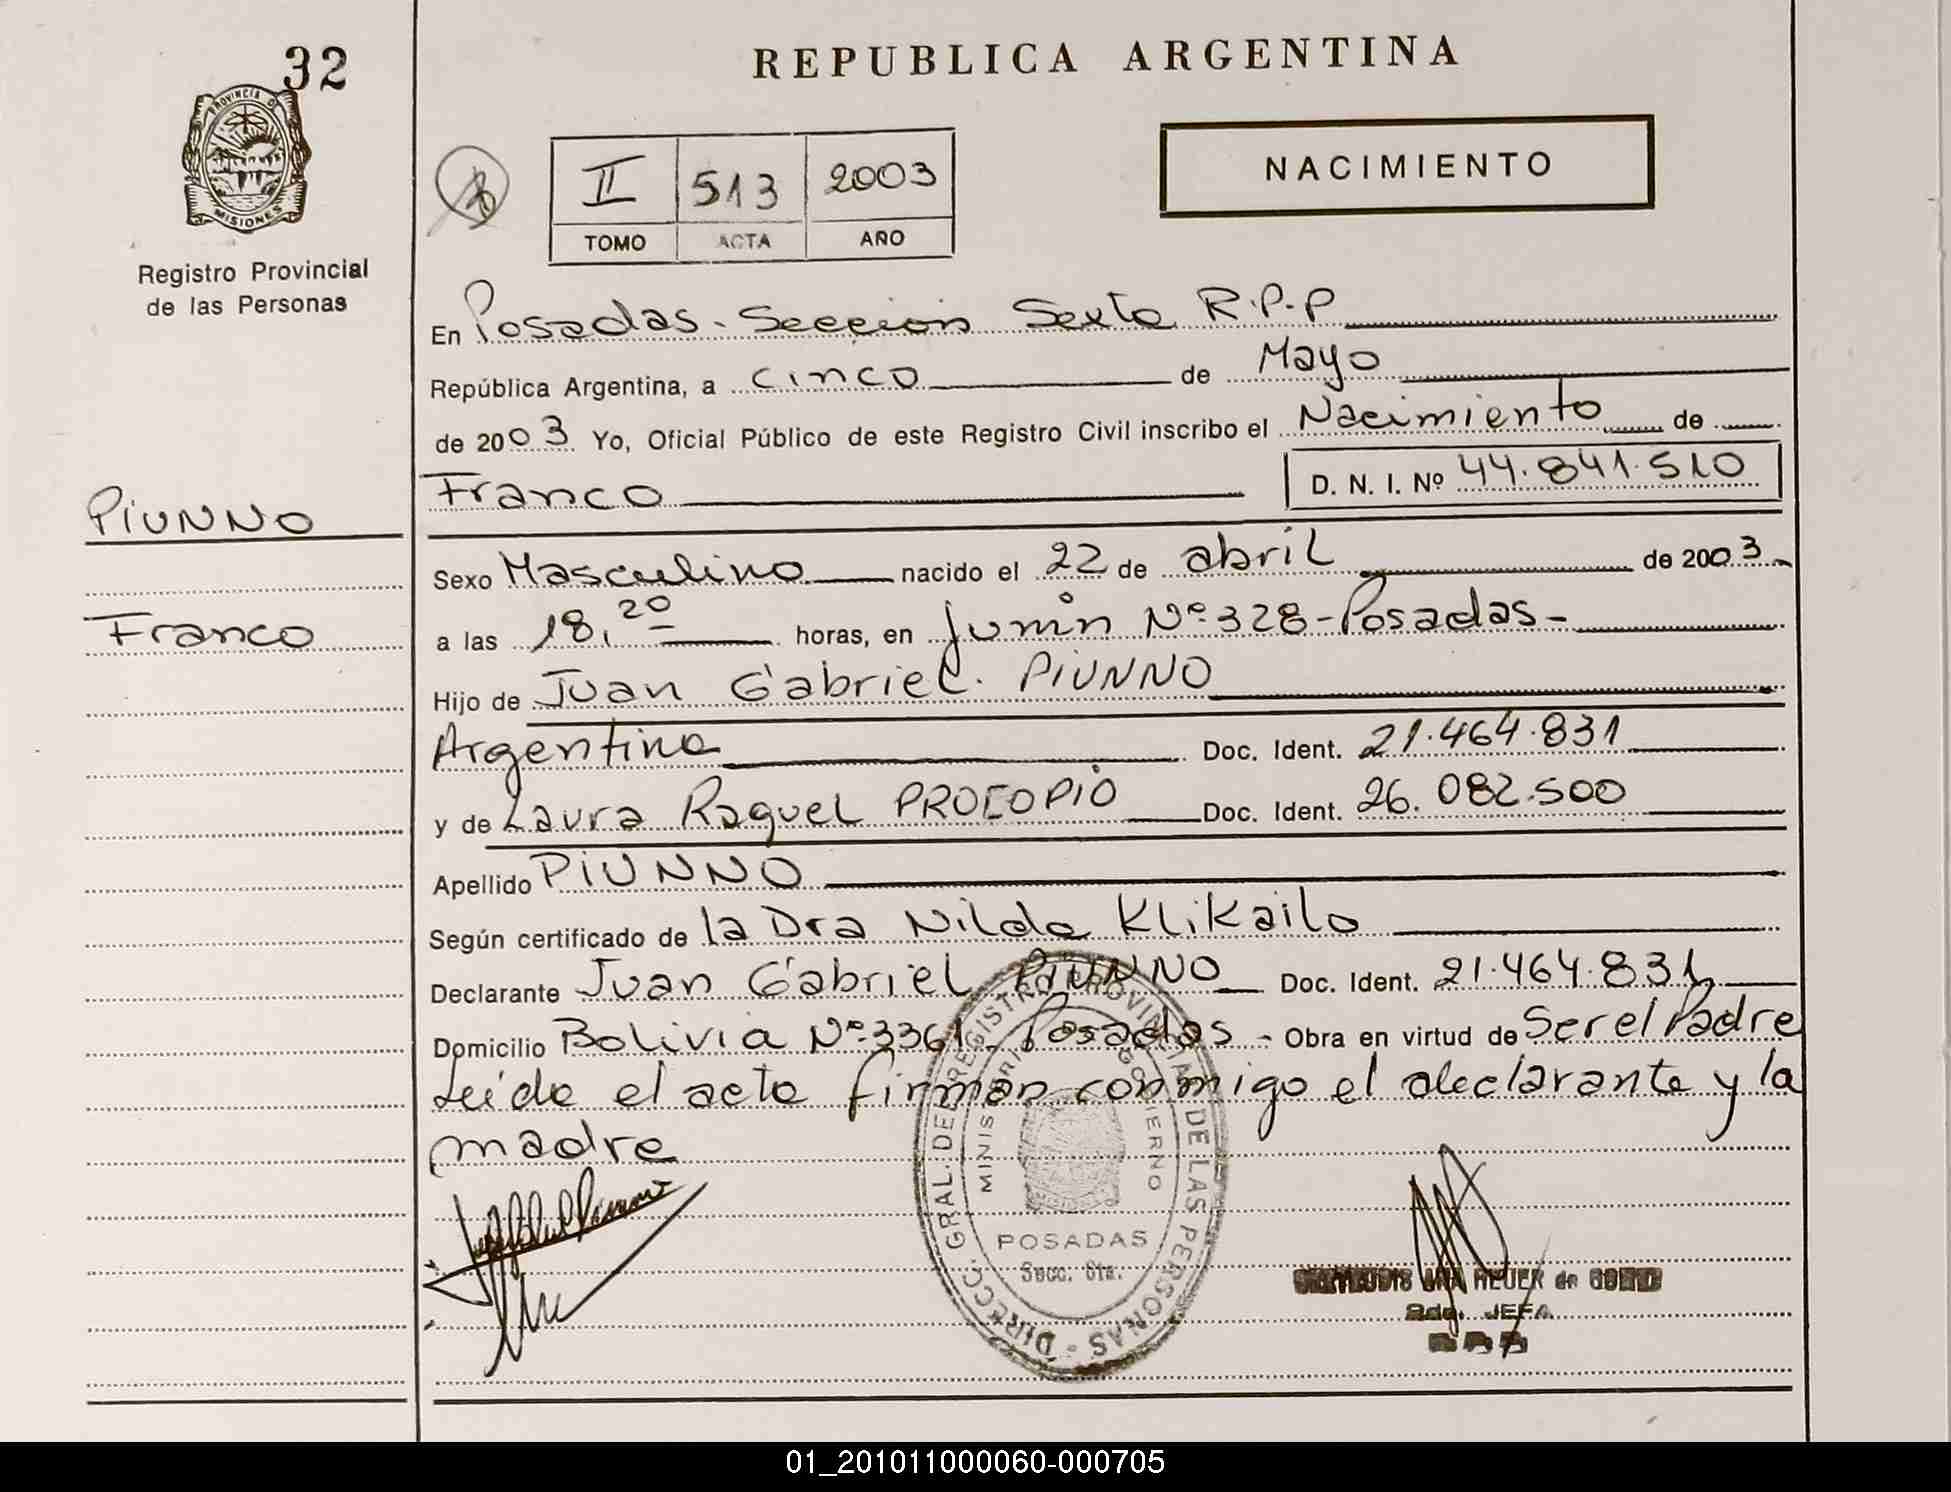 32
REPUBLICA ARGENTINA
PROVINCIA D
MISIONES
Registro Provincial
de las Personas
II 513 2003
TOMO ACTA AÑO
NACIMIENTO
En Posadas - Seccion Sexta R.P.P
República Argentina, a cinco de Mayo
de 2003 Yo, Oficial Público de este Registro Civil inscribo el Nacimiento de
Franco D. N. I. Nº 44.841.510
PiUNNO
Sexo Masculino nacido el 22 de abril de 2003
Franco
a las 18,20 horas, en Junin Nº 328 - Posadas -
Hijo de Juan Gabriel PiUNNO
Argentina Doc. Ident. 21.464.831
y de Laura Raquel PROCOPIO Doc. Ident. 26.082.500
Apellido PiUNNO
Según certificado de la Dra Nilda Klikailo
Declarante Juan Gabriel PiUNNO Doc. Ident. 21.464.831
Domicilio Bolivia Nº 3361 - Posadas - Obra en virtud de Ser el Padre
Leida el acta firman conmigo el declarante y la
madre
DIRECC. GRAL. DEL REGISTRO PROVINCIAL DE LAS PERSONAS -
MINISTERIO GOBIERNO
POSADAS
Secc. 6ta.
ANA REUER de
JEFA
01_201011000060-000705